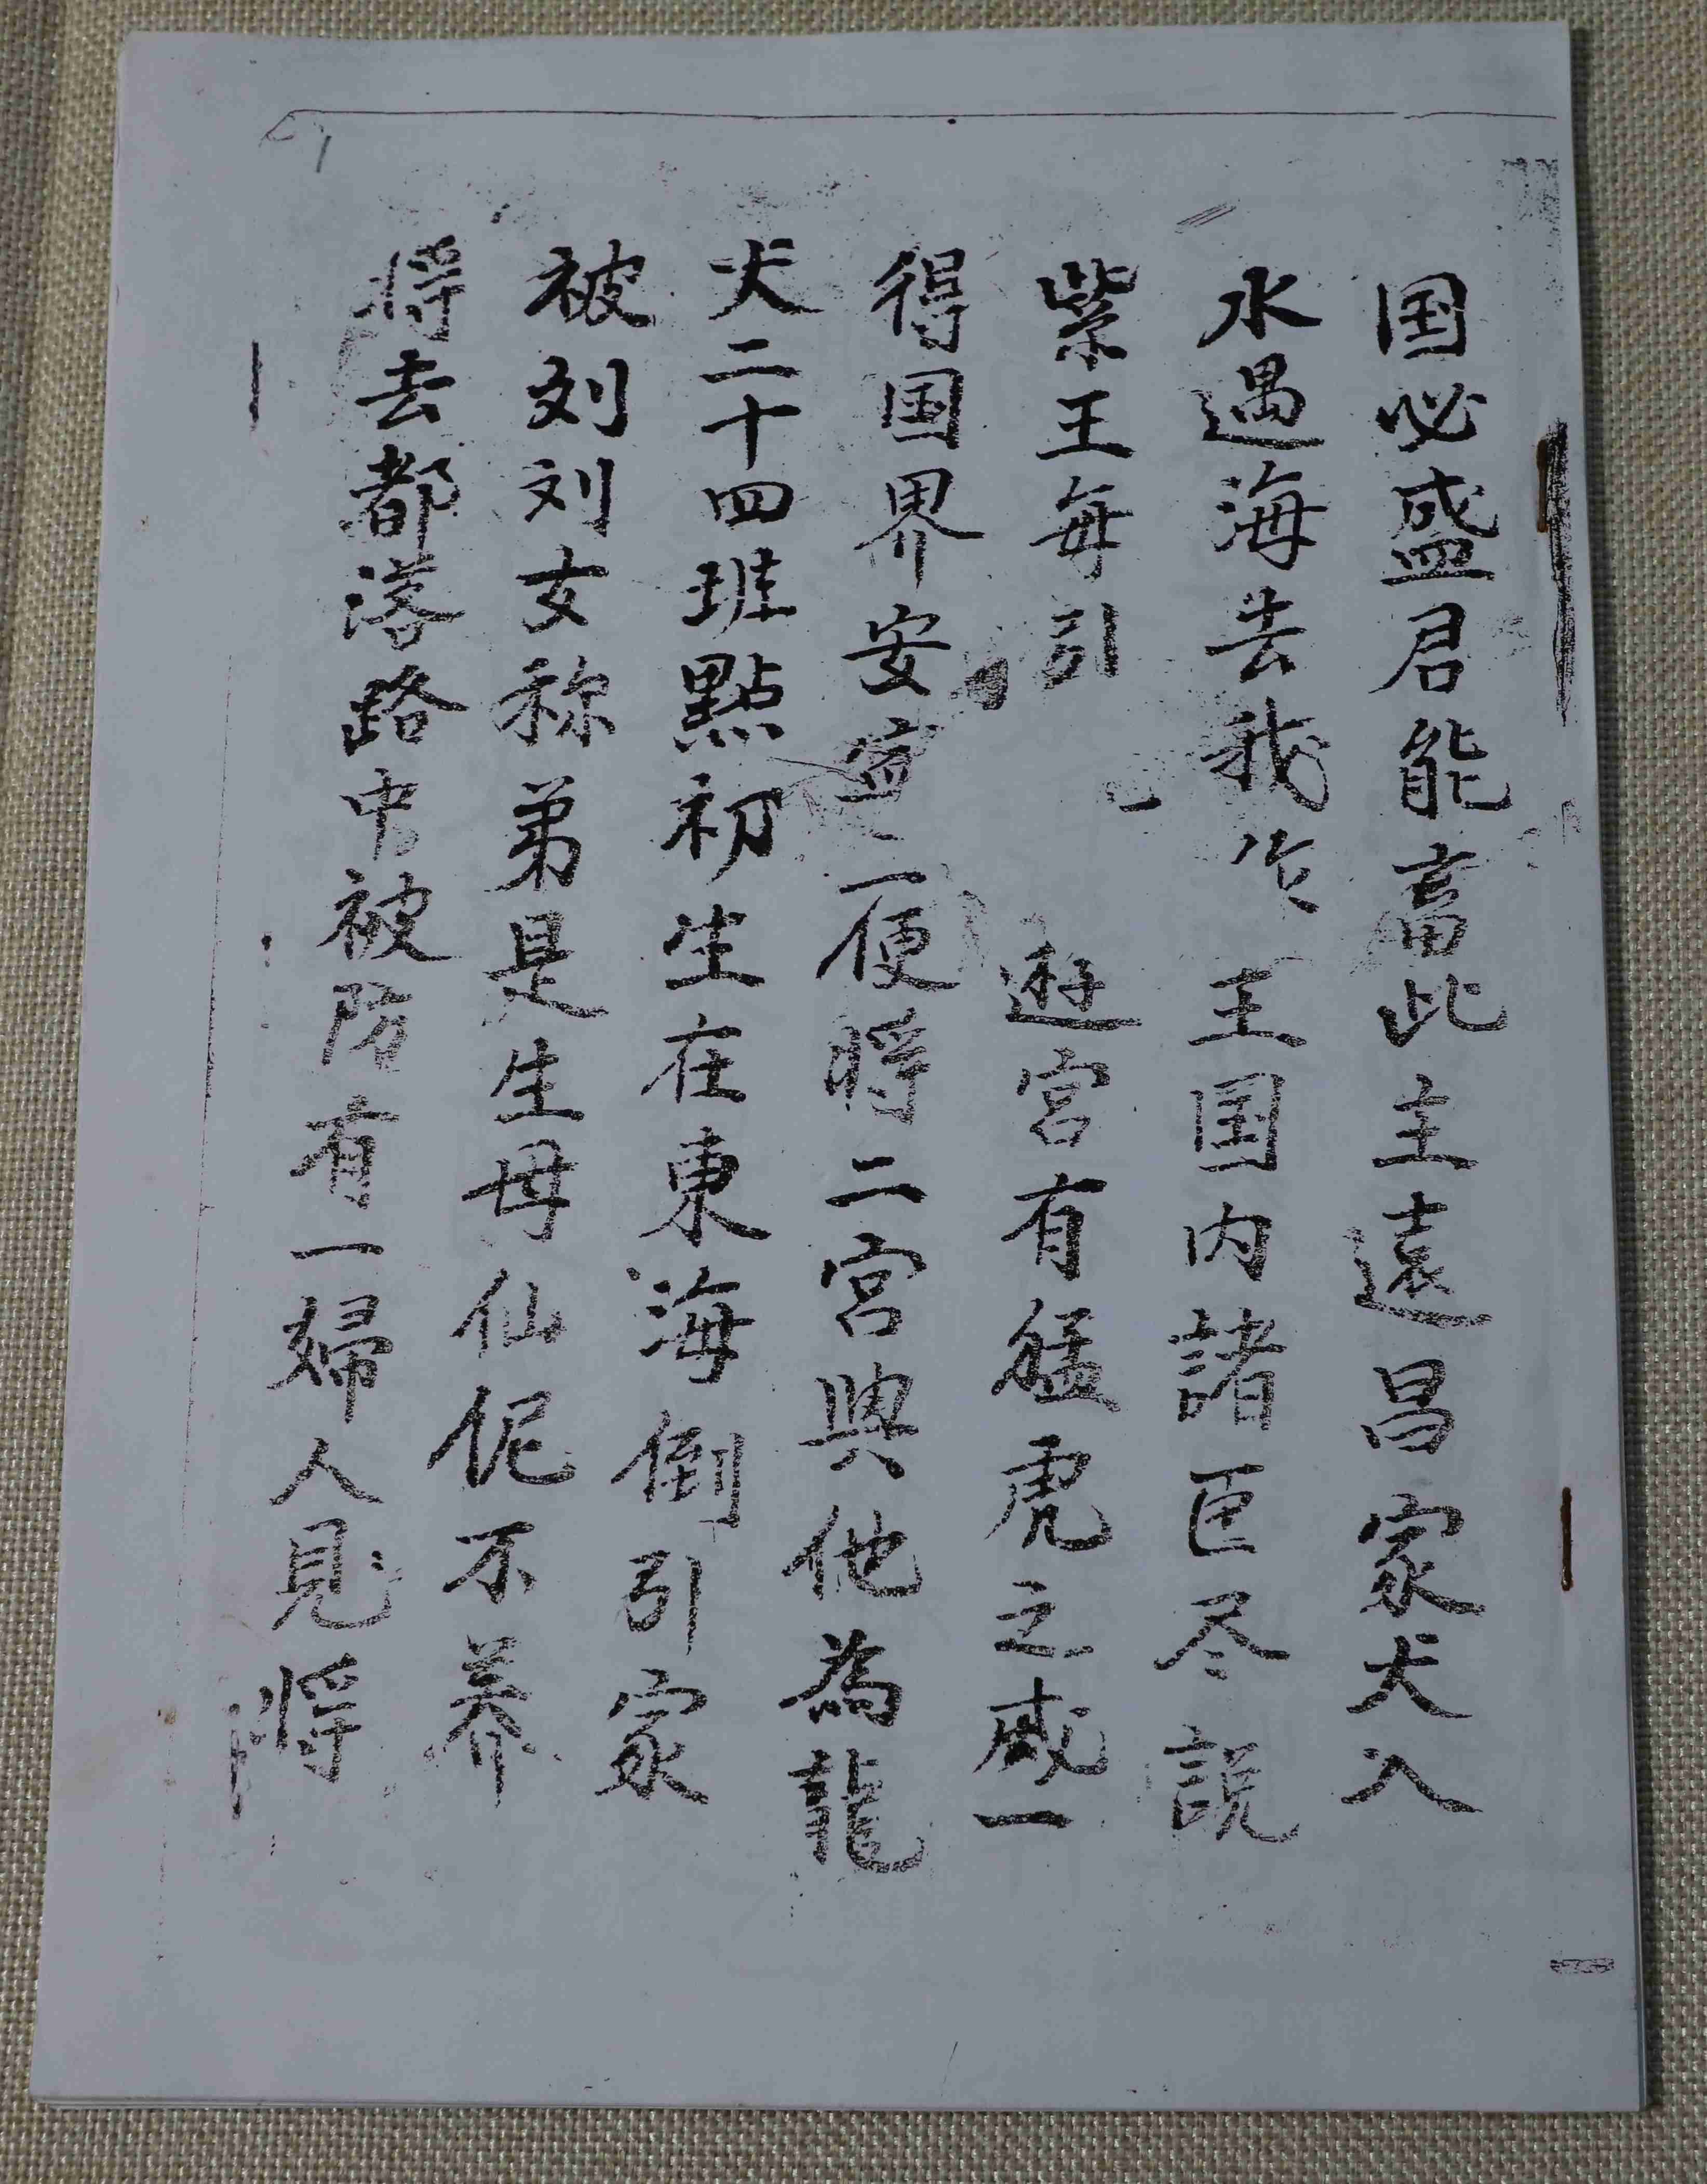 国必盛君能畜此主遠昌家犬入
水過海去我 王国内諸臣尽説
紫王每引 遊宮有猛虎之威一
得国界安寧二便将二宮與他為龍
犬二十四班點初生在東海倒引家
被刘刘女称弟是生母仙伲不养
将去都落路中被防有一婦人見将